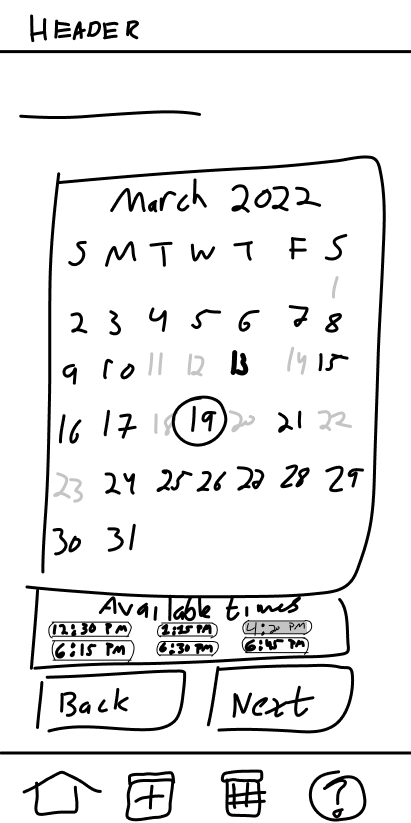 HEADER
March 2022
S M T W T F S
1
2 3 4 5 6 7 8
9 10 11 12 13 14 15
16 17 18 19 20 21 22
23 24 25 26 27 28 29
30 31
Available times
12:30 PM 1:15 PM 4:20 PM
6:15 PM 6:30 PM 6:45 PM
Back Next
?